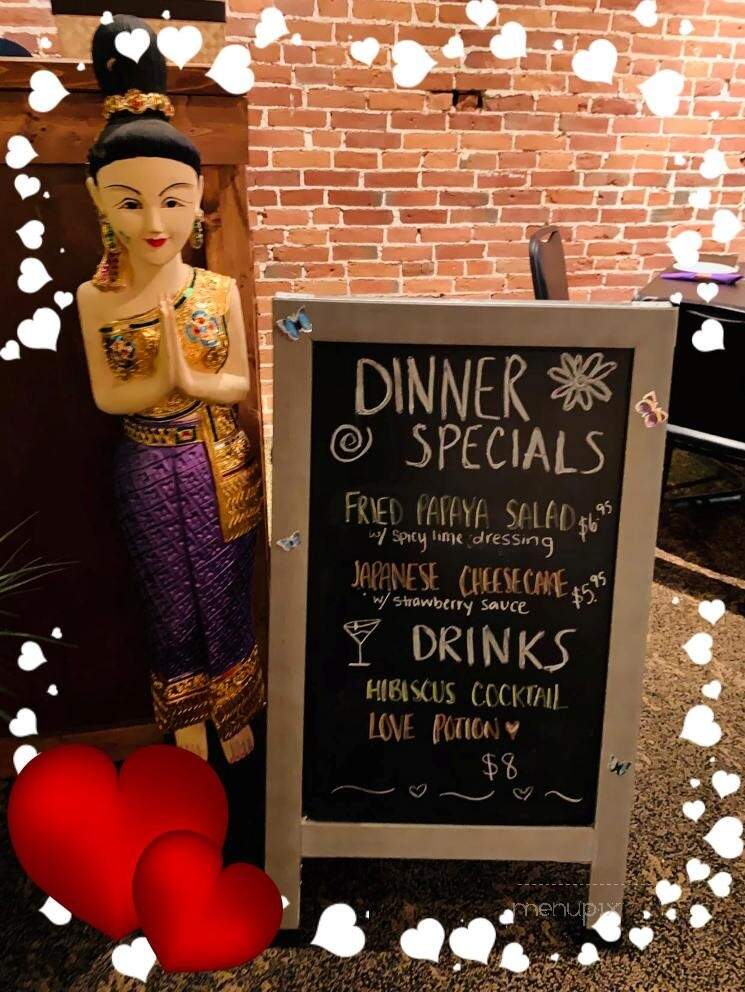 DINNER
SPECIALS
FRIED PAPAYA SALAD $6.95
w/ spicy lime dressing
JAPANESE CHEESECAKE $5.95
w/ strawberry sauce
DRINKS
HIBISCUS COCKTAIL
LOVE POTION ♥
$8
menupix